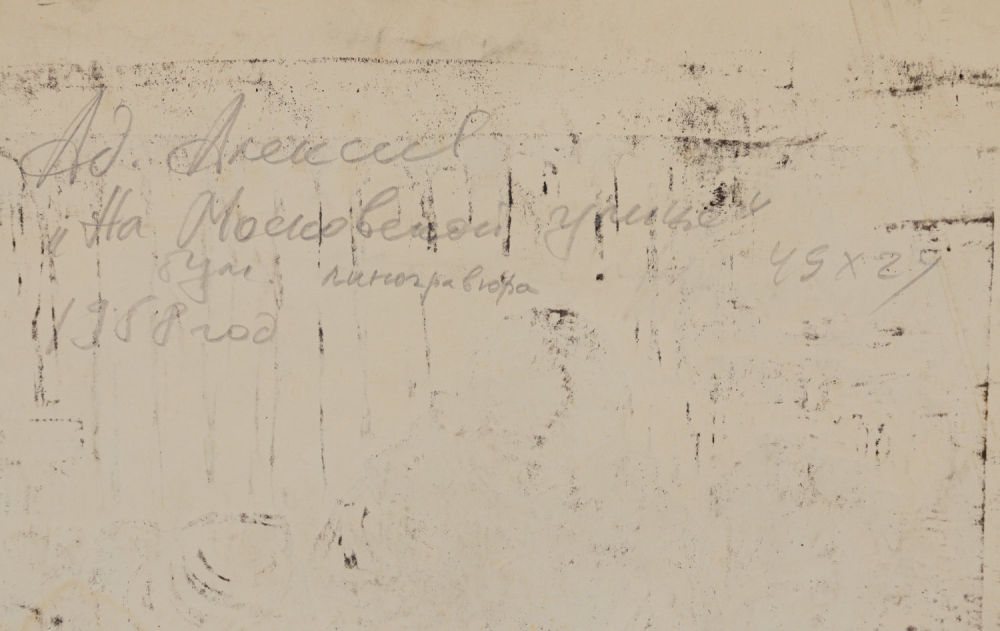 Ад. Алексеев
"На Московской улице"
бум. линогравюра 49 x 29
1958 год